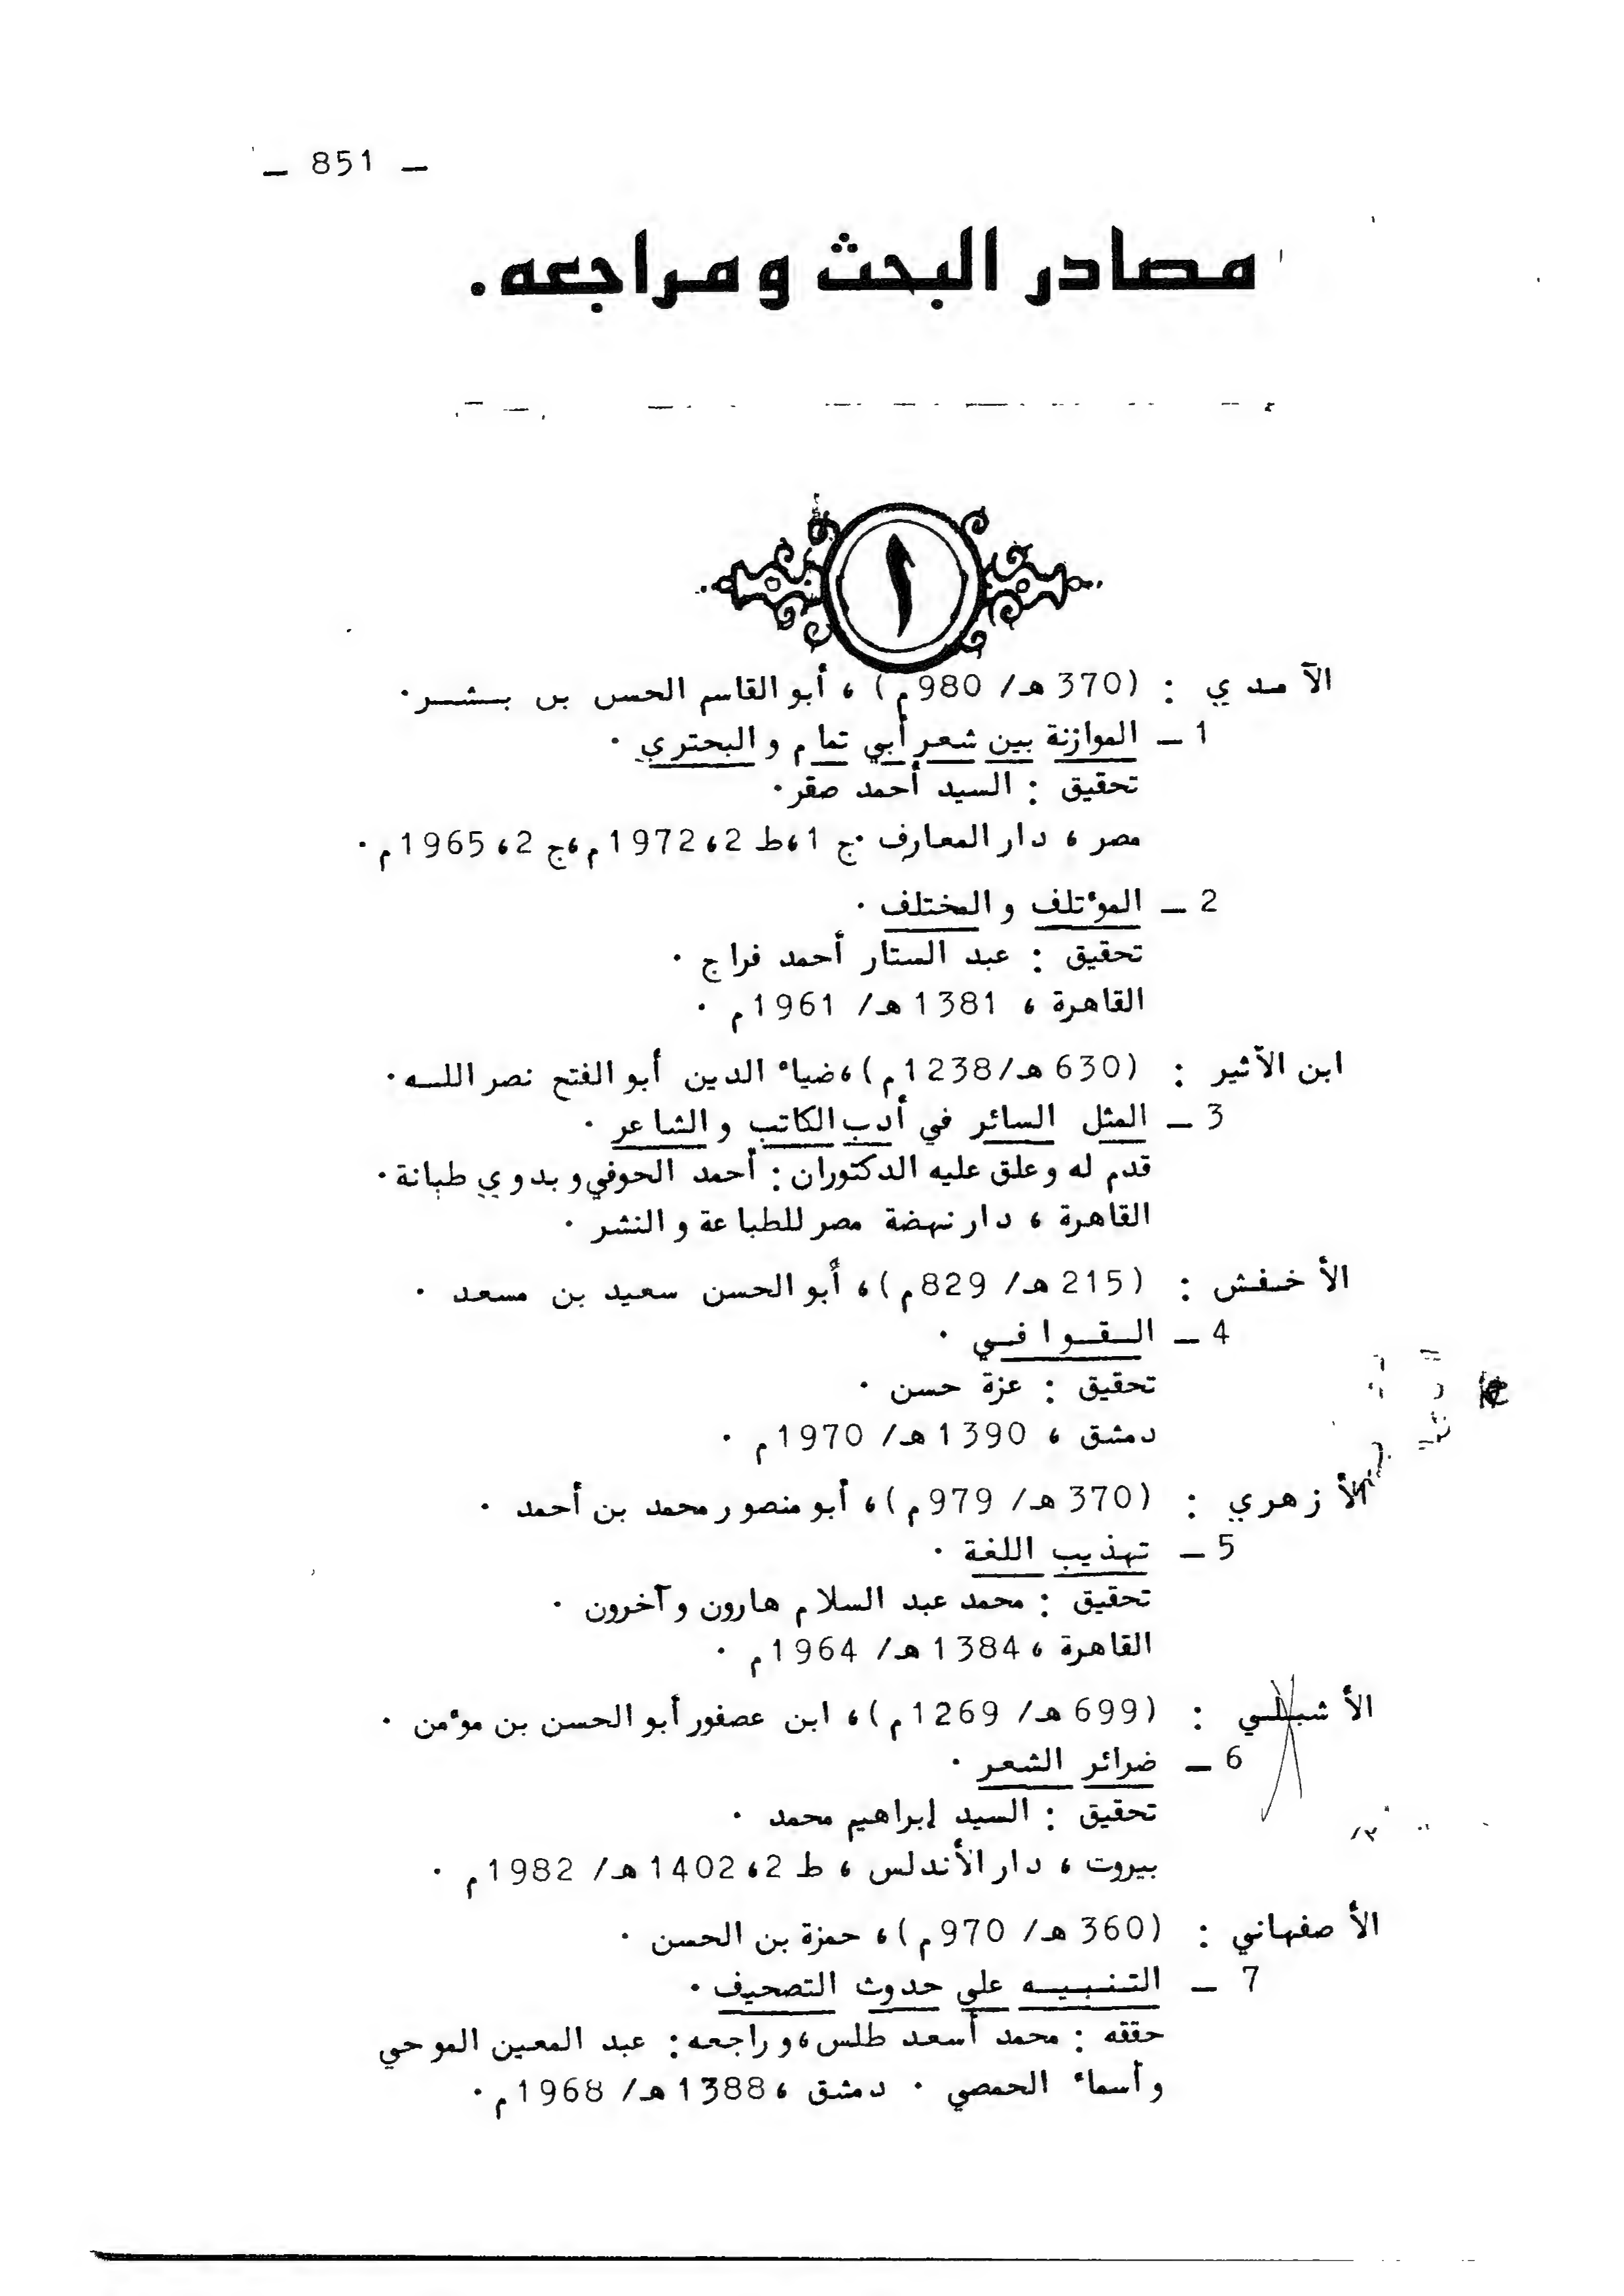 — 851 —
مصادر البحث ومراجعه.
ا
الآمدي : (370 هـ/ 980م) ، أبو القاسم الحسن بن بشر.
1 — الموازنة بين شعر أبي تمام و البحتري .
تحقيق : السيد أحمد صقر.
مصر ، دار المعارف .ج 1،ط 2،1972م،ج 2، 1965م .
2 — الموٴتلف و المختلف .
تحقيق : عبد الستار أحمد فراج .
القاهرة ، 1381 هـ/ 1961م .
ابن الأثير : (630 هـ/1238م)،ضياء الدين أبو الفتح نصر الله.
3 — المثل السائر في أدب الكاتب و الشاعر .
قدم له وعلق عليه الدكتوران : أحمد الحوفي وبدوي طبانة.
القاهرة ، دار نهضة مصر للطباعة والنشر .
الأخفش : (215 هـ/ 829م)، أبو الحسن سعيد بن مسعد .
4 — القوافي .
تحقيق : عزة حسن .
دمشق ، 1390 هـ/ 1970م .
الأزهري : (370 هـ/ 979م)، أبو منصور محمد بن أحمد .
5 — تهذيب اللغة .
تحقيق : محمد عبد السلام هارون وآخرون .
القاهرة ،1384 هـ/ 1964م .
الأشبلي : (699 هـ/ 1269م)، ابن عصفور أبو الحسن بن موٴمن .
6 — ضرائر الشعر .
تحقيق : السيد إبراهيم محمد .
بيروت ، دار الأندلس ، ط 2،1402 هـ/ 1982م .
الأصفهاني : (360 هـ/ 970م)، حمزة بن الحسن .
7 — التنبيه على حدوث التصحيف .
حققه : محمد أسعد طلس،و راجعه : عبد المعين الموحي
وأسماء الحمصي . دمشق ،1388 هـ/ 1968م.